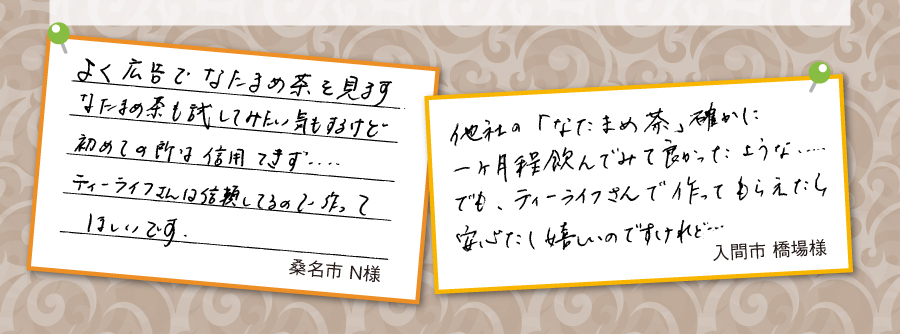 よく広告でなたまめ茶を見ます
なたまめ茶も試してみたい気もするけど
初めての所は信用できず‥‥
ティーライフさんは信頼してるので、作って
ほしいです.
桑名市 N様
他社の「なたまめ茶」確かに
一ヶ月程飲んでみて良かったような、‥‥
でも、ティーライフさんで作ってもらえたら
安心だし嬉しいのですけれど‥・
入間市 橋場様